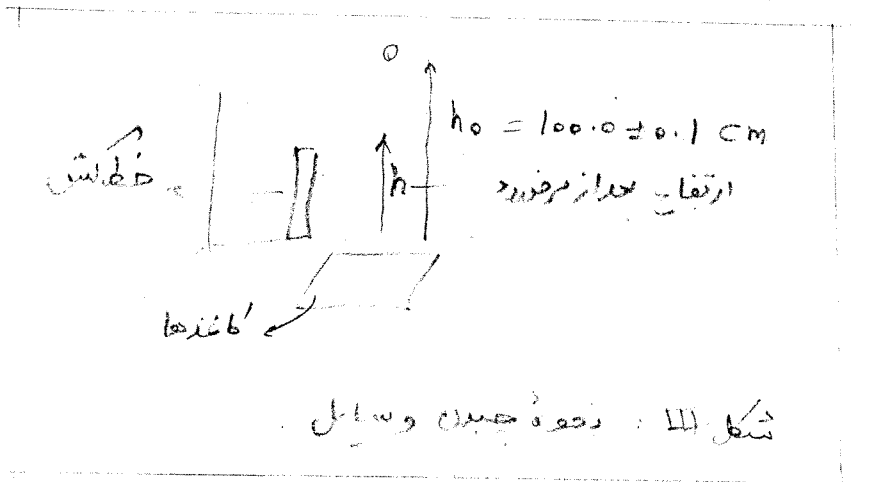 h₀ = 100.0 ± 0.1 cm
خط‌کش
h
ارتفاع بعد از برخورد
کاغذها
شکل III : نحوهٔ چیدن وسایل .